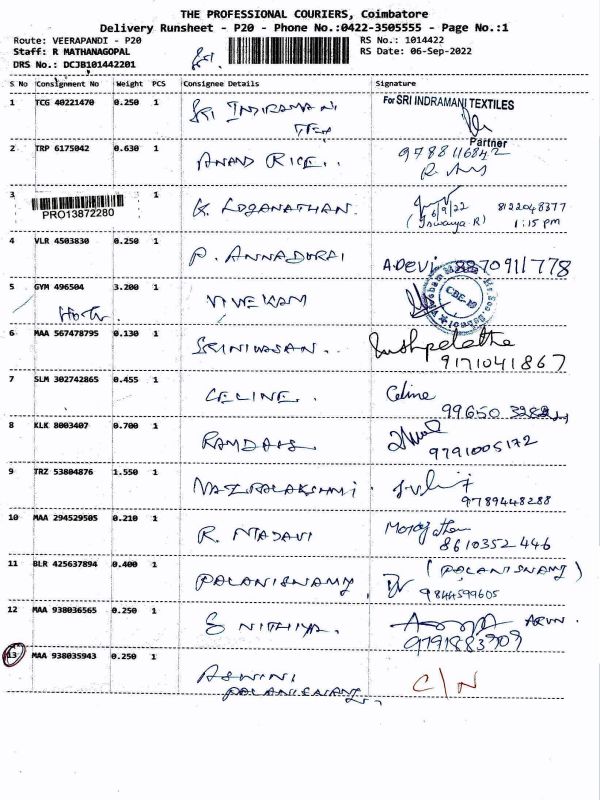 THE PROFESSIONAL COURIERS, Coimbatore
Delivery Runsheet - P20 - Phone No.:0422-3505555 - Page No.:1
Route: VEERAPANDI - P20
Staff: R MATHANAGOPAL
DRS No.: DCJB101442201
RS No.: 1014422
RS Date: 06-Sep-2022
S No Consignment No Weight PCS Consignee Details Signature
1 TCG 40221470 0.250 1 SRI INDIRAMANI TEX For SRI INDRAMANI TEXTILES
Partner
2 TRP 6175042 0.630 1 ANAND RICE.. 9788116842
3 PRO13872280 1 K. LOGANATHAN. 6/9/22 8122048377
(Iswarya.R) 1:15 pm
4 VLR 4503830 0.250 1 P. ANNADURAI A.DEVI 8870911778
5 GYM 496504 3.200 1 VIVEKAM CBE-19
6 MAA 567478795 0.130 1 SRINIVASAN.. Pushpalatha
9171041867
7 SLM 302742865 0.455 1 CELINE. Celine
99650
8 KLK 8003407 0.700 1 RAMDASS. 9791005172
9 TRZ 53804876 1.550 1 9789448288
10 MAA 294529505 0.210 1 R. 8610352446
11 BLR 425637894 0.400 1 PALANISWAMY, (PALANISWAMY)
9844599605
12 MAA 938036565 0.250 1 S NITHIYA. ARUN.
9791883909
13 MAA 938035943 0.250 1 ASWINI C/N
PALANISWAMY,